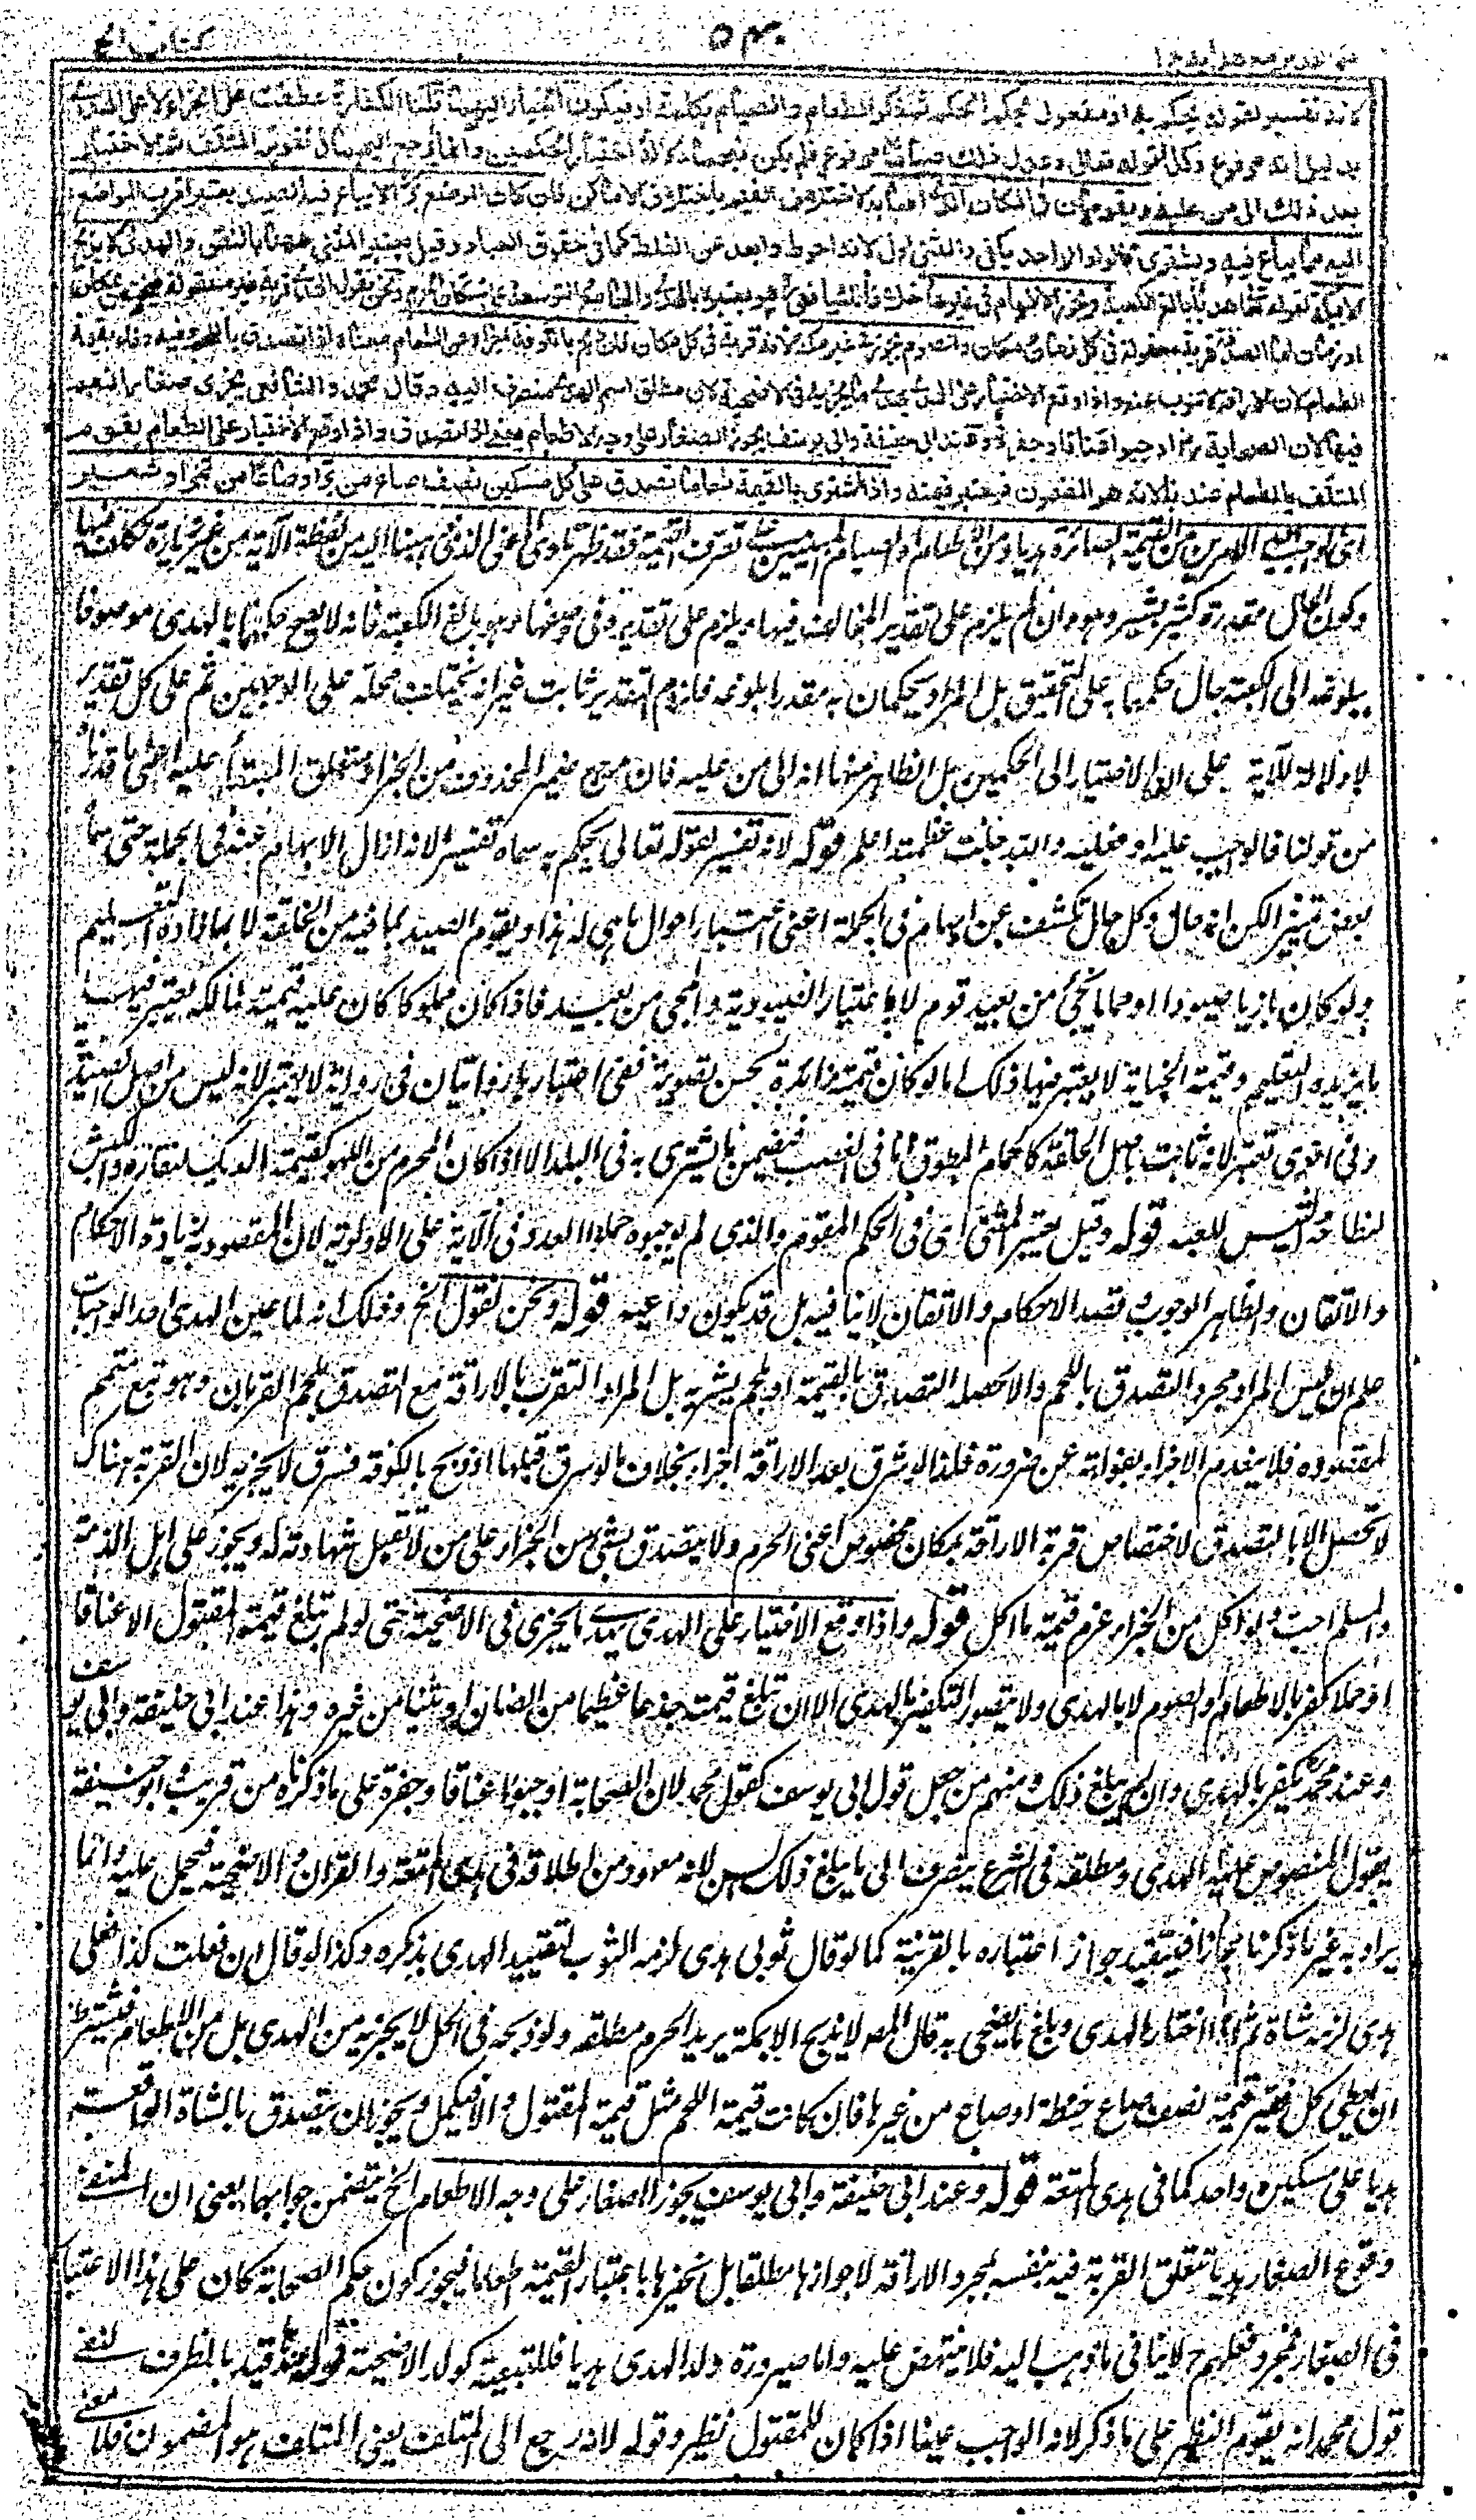 كتاب الحج
٥٣٠
لانه تفسير لقوله يحكم به او مفعول لحكم الحكم ثم ذكر الطعام والصيام بكلمة او فيكون الخيار اليهما قلنا الكفارة عطفت على الجزاء لا على الهدى
بدليل انه مرفوع وكذا قوله تعالى او عدل ذلك صياما مرفوع فلم يكن فيهما دلالة اختيار الحكمين وانما يرجع اليهما في تقويم المتلف ثم الاختيار
بعد ذلك الى من عليه ويقومان في المكان الذي اصابه لاختلاف القيم باختلاف الاماكن فان كان الموضع برا لا يباع فيه الصيد يعتبر اقرب المواضع
اليه مما يباع فيه ويشترى قالوا والواحد يكفي والمثنى اولى لانه احوط وابعد عن الغلط كما في حقوق العباد وقيل يعتبر المثنى ههنا بالنص والهدى لا يذبح
الا بمكة لقوله تعالى هديا بالغ الكعبة ويجوز الاطعام في غيرها خلافا للشافعي هو يعتبره بالهدى والجامع التوسعة على سكان الحرم ونحن نقول الهدى قربة غير معقولة فيختص بمكان
او زمان اما الصدقة قربة معقولة في كل زمان ومكان والصوم يجوز في غير مكة لانه قربة في كل مكان فان ذبح بالكوفة اجزاه عن الطعام معناه اذا تصدق باللحم وفيه وفاء بقيمة
الطعام لان الاراقة لا تنوب عنه واذا وقع الاختيار على الهدى يهدى ما يجزيه في الاضحية لان مطلق اسم الهدى منصرف اليه وقال محمد والشافعي يجزى صغار النعم
فيها لان الصحابة رض اوجبوا عناقا وجفرة وعند ابي حنيفة وابي يوسف يجوز الصغار على وجه الاطعام يعني اذا تصدق واذا وقع الاختيار على الطعام يقوم
المتلف بالطعام عندنا لانه هو المضمون فيعتبر قيمته واذا اشترى بالقيمة طعاما تصدق على كل مسكين نصف صاع من بر او صاعا من تمر او شعير
اي الواجب احد الامرين من القيمة الصائرة هديا ومن الاطعام او الصيام المبنيين على تعرف القيمة فقد ظهر تادى المعنى الذي ذهبنا اليه من لفظة الآية من غير زيادة تكلف فيها
وكون الحال مقدرة كثير يشير وهو وان لم يلزم على تقدير المخالفة فيها ويلزم على تقديره في وصفها وهو بالغ الكعبة فانه لا يصح حكمهما بالهدى موصوفا
ببلوغه الى الكعبة حال حكمهما به على التحقيق بل المراد يحكمان به مقدرا بلوغه فلزوم التقدير ثابت غير انه يختلف محله على الوجهين ثم على كل تقدير
لا دلالة للآية على ان الاختيار الى الحكمين بل الظاهر منها انه الى من عليه فان مرجع ضمير المحذوف من الجزاء ومتعلق المبتدأ عليه اعنى ما قدرناه
من قولنا فالواجب عليه او فعليه والله جلت عظمته اعلم قوله لانه تفسير لقوله تعالى يحكم به سماه تفسيرا لانه ازال الابهام عنه في الجملة حتى سماه
بعض تمييزا لكن انه حال وكل حال تكشف عن ابهام في الجملة اعنى اعتبار احوال ما هي له هذا ويقوم الصيد بما فيه من الخلقة لا بما زاده التعليم
ولو كان بازيا صيودا او حماما يجئ من بعيد قوم لا باعتبار الصيودية والمجئ من بعيد فاذا كان مملوكا كان عليه قيمته لمالكه يعتبر فيها
ما يزيده التعليم وقيمة الجناية لا يعتبر فيها ذلك اما لو كان قيمة زائدة بحسن تصويته ففي اعتبارها روايتان في رواية لا يعتبر لانه ليس من اصل الصيدية
وفي اخرى تعتبر لانه ثابت باصل الخلقة كالحمام المطوق اما في الغصب فيضمن ما يشترى به في البلد الا اذا كان المحرم من اللهو كقيمة الديك لنقاره والكبش
لنطاحه والتيس للعبه قوله وقيل يعتبر المثنى اى في الحكم المقوم والذى لم يوجبوه حملوا العدد في الآية على الاولوية لان المقصود به زيادة الاحكام
والاتقان والظاهر الوجوب وقصد الاحكام والاتقان لا ينافيه بل قد يكون داعيه قوله ونحن نقول الخ وذلك انه لما عين الهدى احد الواجبات
علم ان ليس المراد مجرد التصدق باللحم والا لحصله التصدق بالقيمة او بلحم يشتريه بل المراد التقرب بالاراقة مع التصدق بلحم القربان وهو تبع متمم
لمقصوده فلا ينعدم الاجزاء بفواته عن ضرورة فلذا لو سرق بعد الاراقة اجزاه بخلاف ما لو سرق قبلها او ذبح بالكوفة فسرق لا يجزيه لان القربة هناك
لا تحصل الا بالتصدق لاختصاص قربة الاراقة بمكان مخصوص اعنى الحرم ولا يتصدق بشئ من الجزاء على من لا تقبل شهادته له ويجوز على اهل الذمة
والمسلم احب ولو اكل من الجزاء غرم قيمة ما اكل قوله واذا وقع الاختيار على الهدى يهدى ما يجزى في الاضحية حتى لو لم تبلغ قيمة المقتول الا عناقا
او حملا كفر بالاطعام او الصوم لا بالهدى ولا يتصور التكفير بالهدى الا ان تبلغ قيمته جذعا عظيما من الضأن او ثنيا من غيره وهذا عند ابي حنيفة وابي يوسف
وعند محمد يكفر بالهدى وان لم يبلغ ذلك ومنهم من جعل قول ابي يوسف كقول محمد لان الصحابة اوجبوا عناقا وجفرة على ما ذكرناه من قريب وابو حنيفة
يقول المنصوص عليه الهدى ومطلقه في الشرع ينصرف الى ما يبلغ ذلك السن لانه معهود من اطلاقه في هدى المتعة والقران والاضحية فيحمل عليه وانما
يراد به غير ما ذكرنا مجازا فيتقيد جواز اعتباره بالقرينة كما لو قال ثوبي هدى لزمه الثوب لتقييد الهدى بذكره وكذا لو قال ان فعلت كذا فعلى
هدى لزمه شاة ثم اذا اختار الهدى وبلغ ما يضحى به قال المص لا يذبح الا بمكة يريد الحرم مطلقه ولو ذبحه في الحل لا يجزيه من الهدى بل من الاطعام فيشترط
ان يعطى كل فقير قيمة نصف صاع حنطة او صاع من غيرها فان كانت قيمة اللحم مثل قيمة المقتول والا فيكمل ويجوز ان يتصدق بالشاة الواقعة
هديا على مسكين واحد كما في هدى المتعة قوله وعند ابي حنيفة وابي يوسف يجوز الصغار على وجه الاطعام الخ يتضمن جوابهما يعنى ان المنفى
وقوع الصغار هديا تتعلق القربة فيه بنفسه لمجرد الاراقة لا جوازها مطلقا بل نجيزها باعتبار القيمة اطعاما فيجوز كون حكم الصحابة كان على هذا الاعتبار
في الصغار فمجرد فعلهم ح لا ينافى ما ذهب اليه فلا ينتهض عليه واما صيرورة ولد الهدى هديا فللتبعية كولد الاضحية قوله عندنا قيد بالظرف لنفى
قول محمد انه يقوم النظير على ما ذكر لانه الواجب عينا اذا كان للمقتول نظير وقوله لانه رجع الى المتلف يعنى المتلف هو المضمون فلا معنى